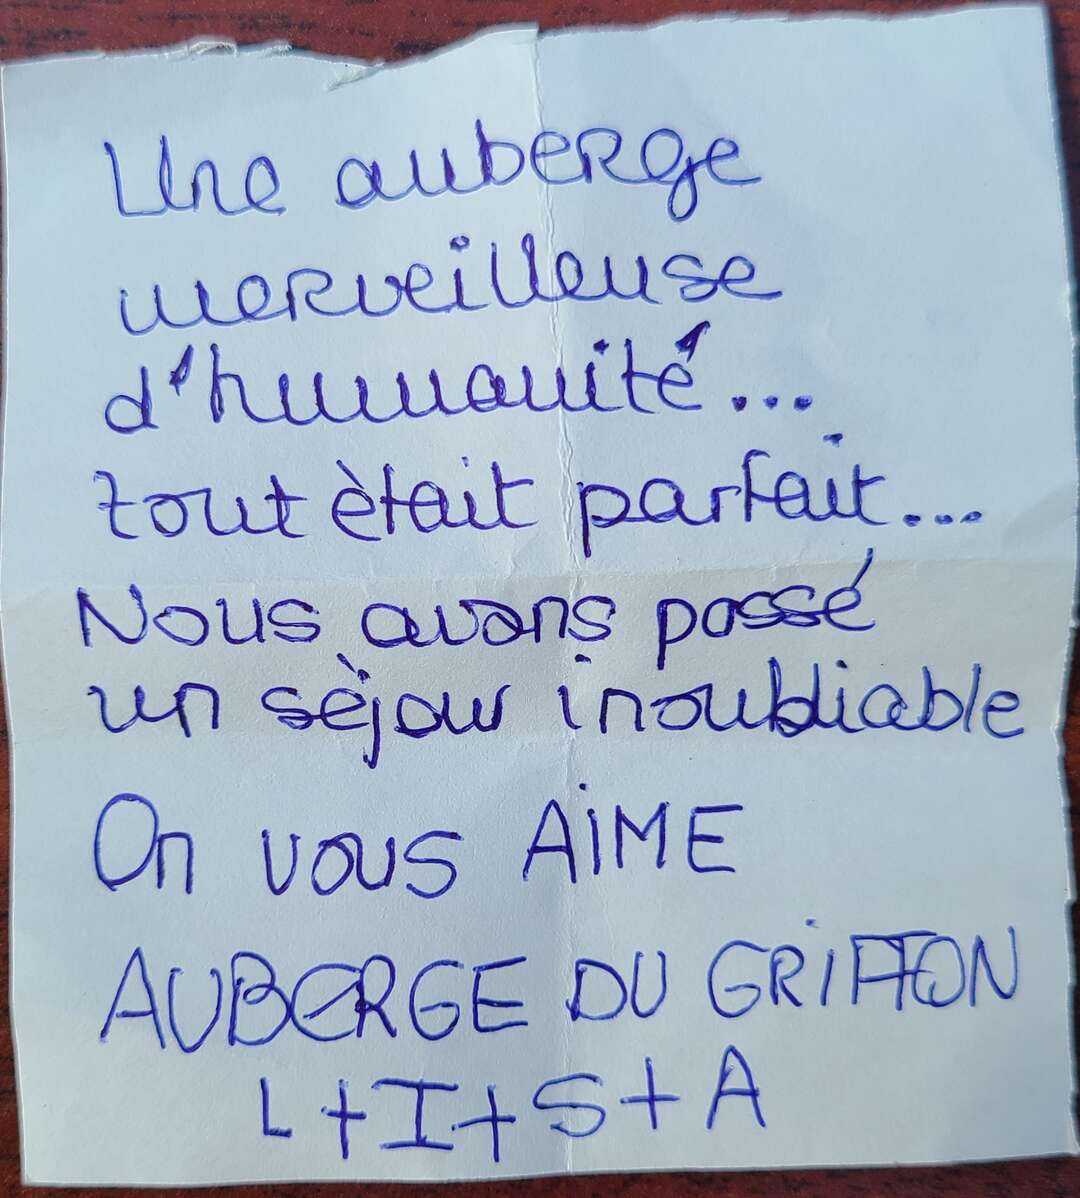 Une auberge
merveilleuse
d'humanité...
tout ètait parfait...
Nous avons passé
un sèjour inoubliable
On vous AiME
AUBERGE DU GRiFFON
L+I+S+A